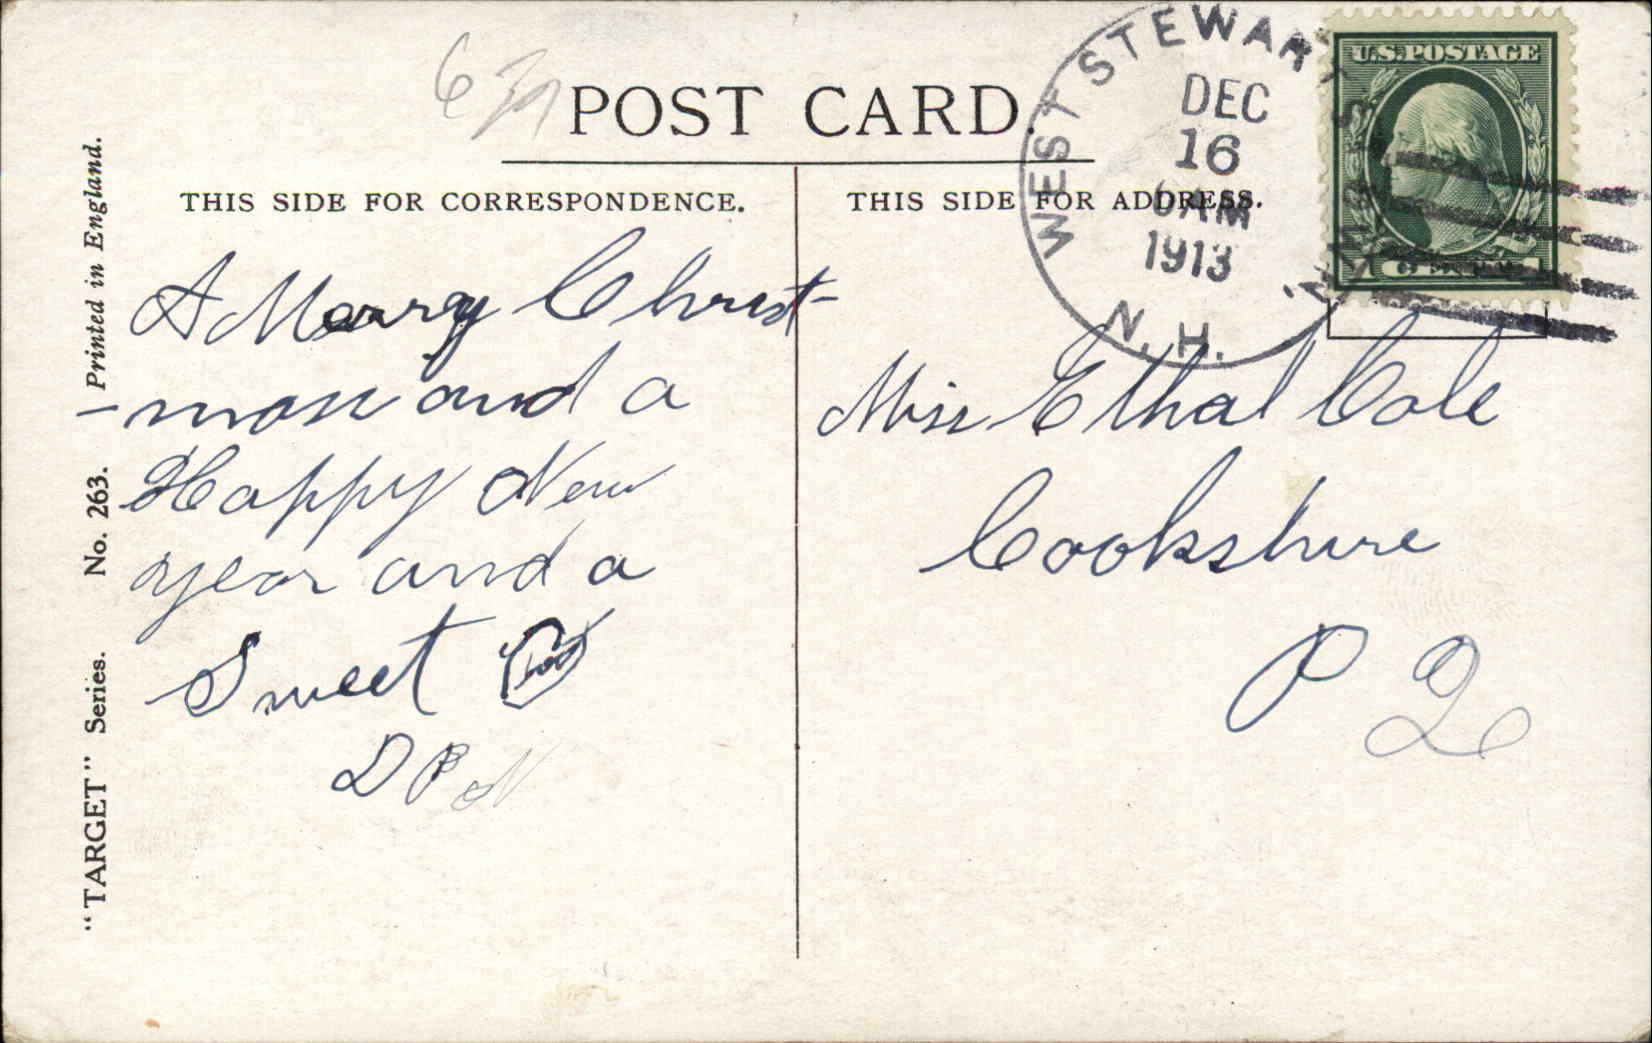 POST CARD.
THIS SIDE FOR CORRESPONDENCE.
THIS SIDE FOR ADDRESS.
"TARGET" Series. No. 263. Printed in England.
WEST STEWARTSTOWN
N.H.
DEC
16
6 AM
1913
U.S. POSTAGE
A Merry Christ-
-mass and a
Happy New
year and a
Sweet
D P N
Miss Ethal Cole
Cookshire
P Q